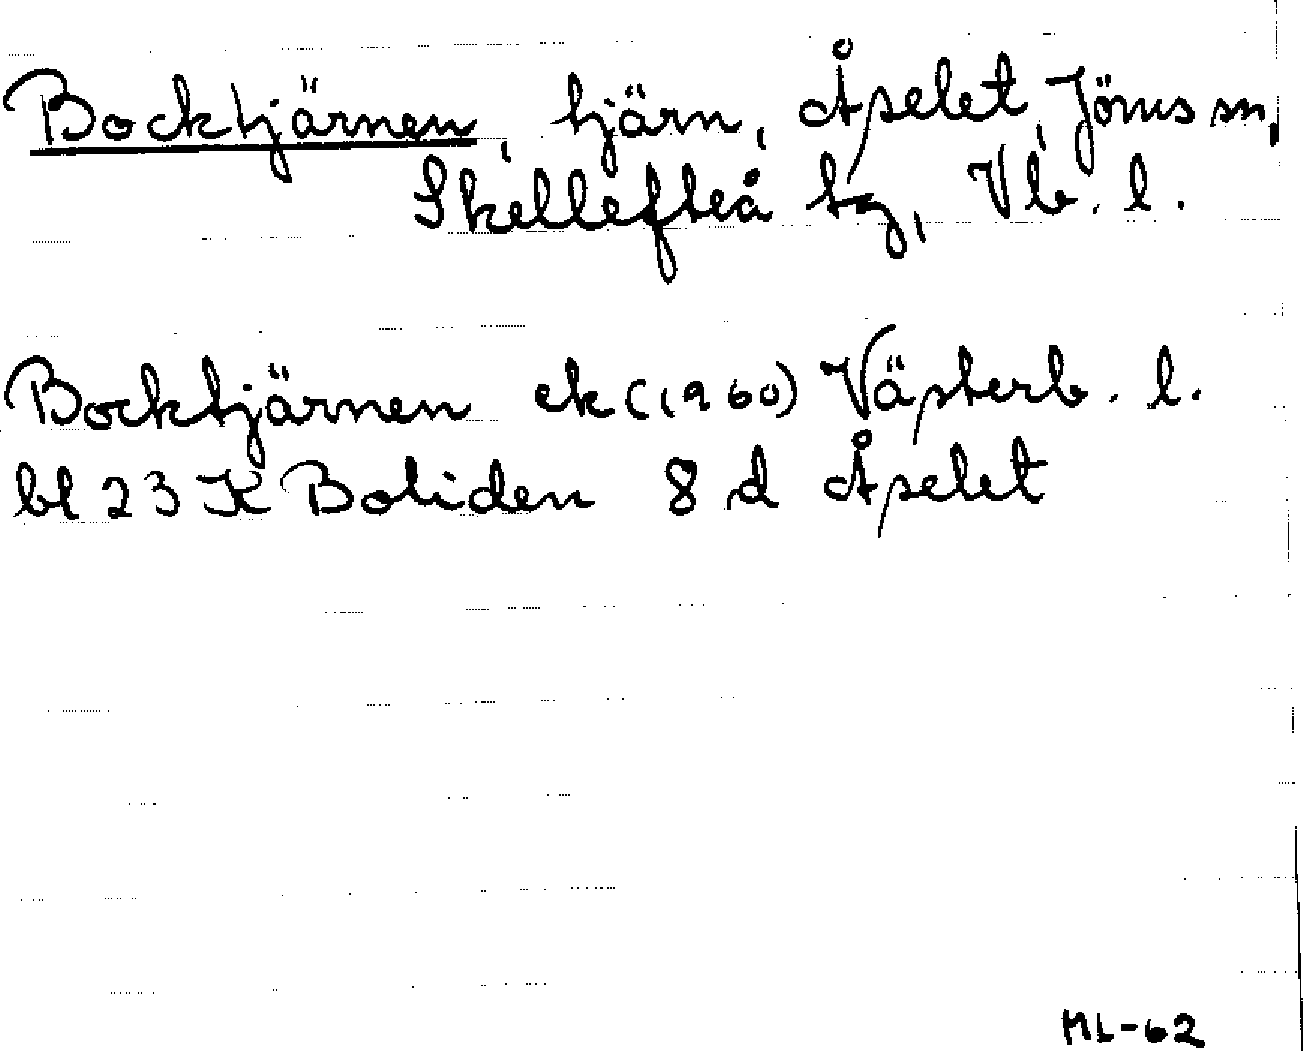 Bocktjärnen, tjärn, Åselet, Jörns sn,
Skellefteå tg, Vb. l.
Bocktjärnen ek (1960) Västerb. l.
bl 23 K Boliden 8 d Åselet
ML-62